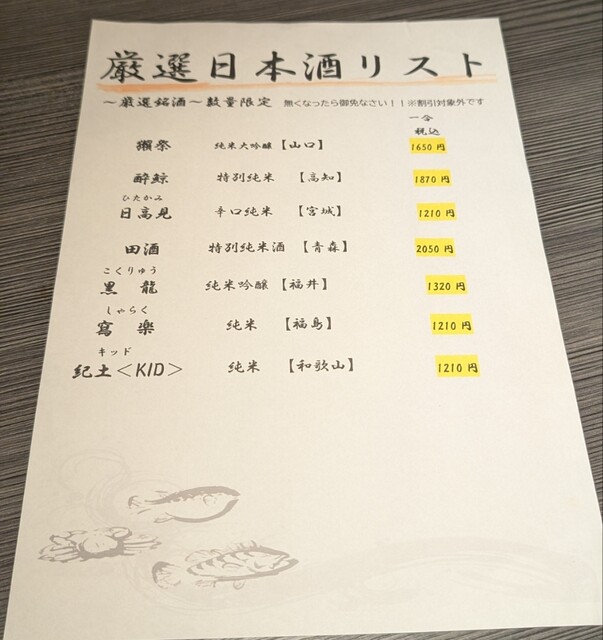 厳選日本酒リスト
～厳選銘酒～数量限定 無くなったら御免なさい！！※割引対象外です
一合
税込
獺祭 純米大吟醸【山口】 1650 円
酔鯨 特別純米 【高知】 1870 円
ひたかみ
日高見 辛口純米 【宮城】 1210 円
田酒 特別純米酒 【青森】 2050 円
こくりゅう
黒龍 純米吟醸【福井】 1320 円
しゃらく
寫楽 純米 【福島】 1210 円
キッド
紀土＜KID＞ 純米 【和歌山】 1210 円